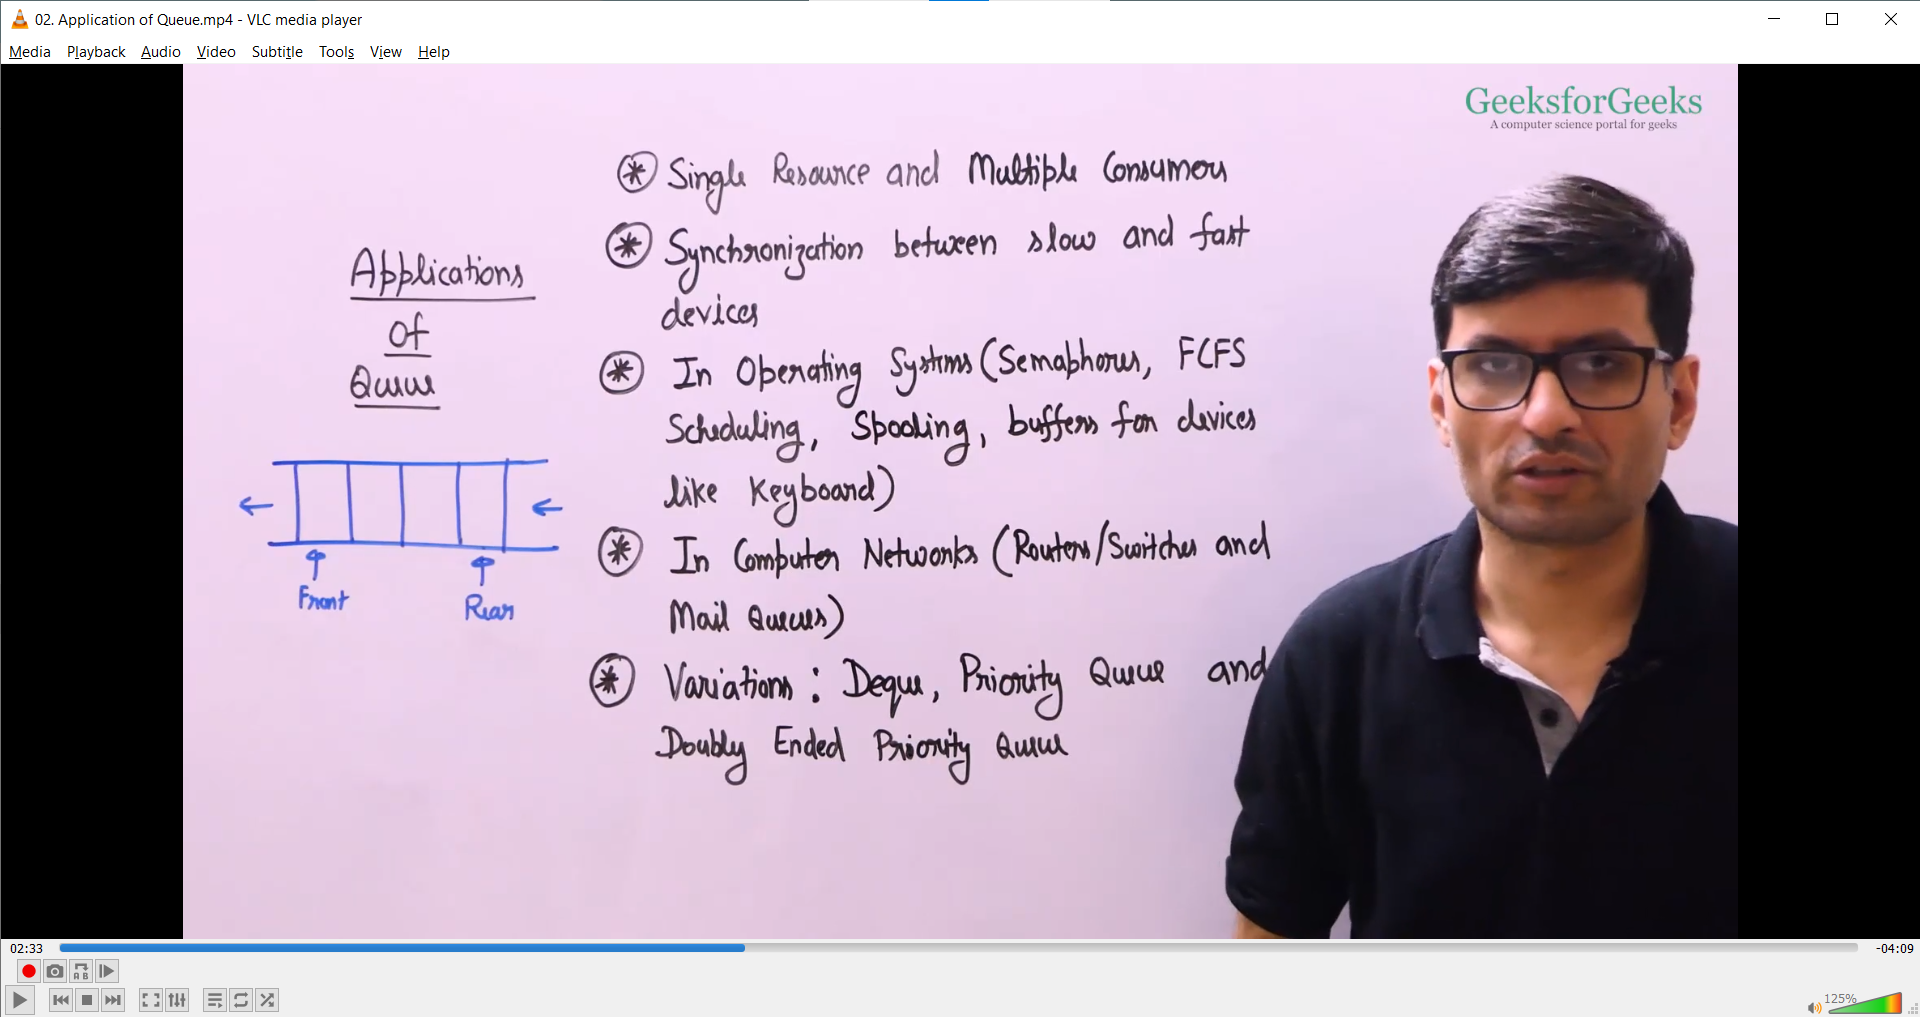 02. Application of Queue.mp4 - VLC media player
Media Playback Audio Video Subtitle Tools View Help
GeeksforGeeks
A computer science portal for geeks
Applications
Of
Queue
Front
Rear
* Single Resource and Multiple Consumers
* Synchronization between slow and fast
devices
* In Operating Systems (Semaphores, FCFS
Scheduling, Spooling, buffers for devices
like Keyboard)
* In Computer Networks (Routers/Switches and
Mail Queues)
* Variations : Deque, Priority Queue and
Doubly Ended Priority Queue
02:33
-04:09
A B
125%